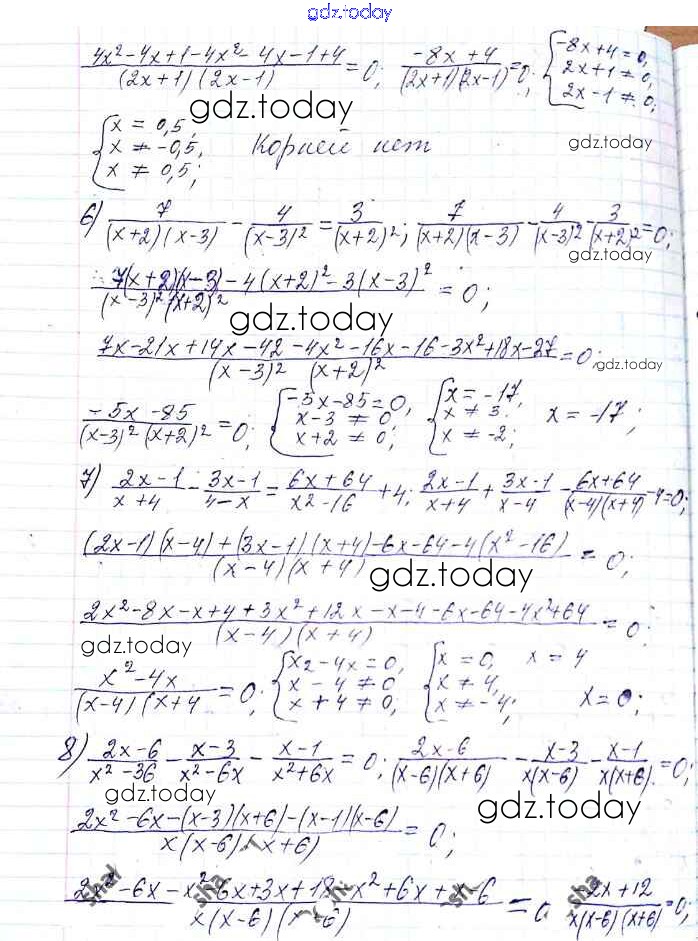 gdz.today
(4x²-4x+1-4x²-4x-1+4)/((2x+1)(2x-1)) = 0; (-8x+4)/((2x+1)(2x-1)) = 0; { -8x+4=0, 2x+1≠0, 2x-1≠0;
gdz.today
gdz.today
{ x = 0,5, x ≠ -0,5, x ≠ 0,5; Корней нет
6) 7/((x+2)(x-3)) - 4/(x-3)² = 3/(x+2)²; 7/((x+2)(x-3)) - 4/(x-3)² - 3/(x+2)² = 0;
(7(x+2)(x-3)-4(x+2)²-3(x-3)²)/((x-3)²(x+2)²) = 0;
gdz.today
(7x-21x+14x-42-4x²-16x-16-3x²+18x-27)/((x-3)² (x+2)²) = 0;
gdz.today
(-5x-85)/((x-3)²(x+2)²) = 0; { -5x-85=0, x-3≠0, x+2≠0; { x=-17, x≠3, x≠-2; x = -17;
7) (2x-1)/(x+4) - (3x-1)/(4-x) = (6x+64)/(x²-16) + 4; (2x-1)/(x+4) + (3x-1)/(x-4) - (6x+64)/((x-4)(x+4)) - 4 = 0;
((2x-1)(x-4)+(3x-1)(x+4)-6x-64-4(x²-16))/((x-4)(x+4)) = 0;
gdz.today
(2x²-8x-x+4+3x²+12x-x-4-6x-64-4x²+64)/((x-4)(x+4)) = 0;
gdz.today
(x²-4x)/((x-4)(x+4 = 0; { x2-4x=0, x-4≠0, x+4≠0; { x=0, x=4 x≠4, x≠-4; x=0;
8) (2x-6)/(x²-36) - (x-3)/(x²-6x) - (x-1)/(x²+6x) = 0; (2x-6)/((x-6)(x+6)) - (x-3)/(x(x-6)) - (x-1)/(x(x+6)) = 0;
gdz.today
gdz.today
(2x²-6x-(x-3)(x+6)-(x-1)(x-6))/(x(x-6)(x+6)) = 0;
(2x²-6x-x²-6x+3x+18-x²+6x+x-6)/(x(x-6)(x-6) = 0 (2x+12)/(x(x-6)(x+6)) = 0;